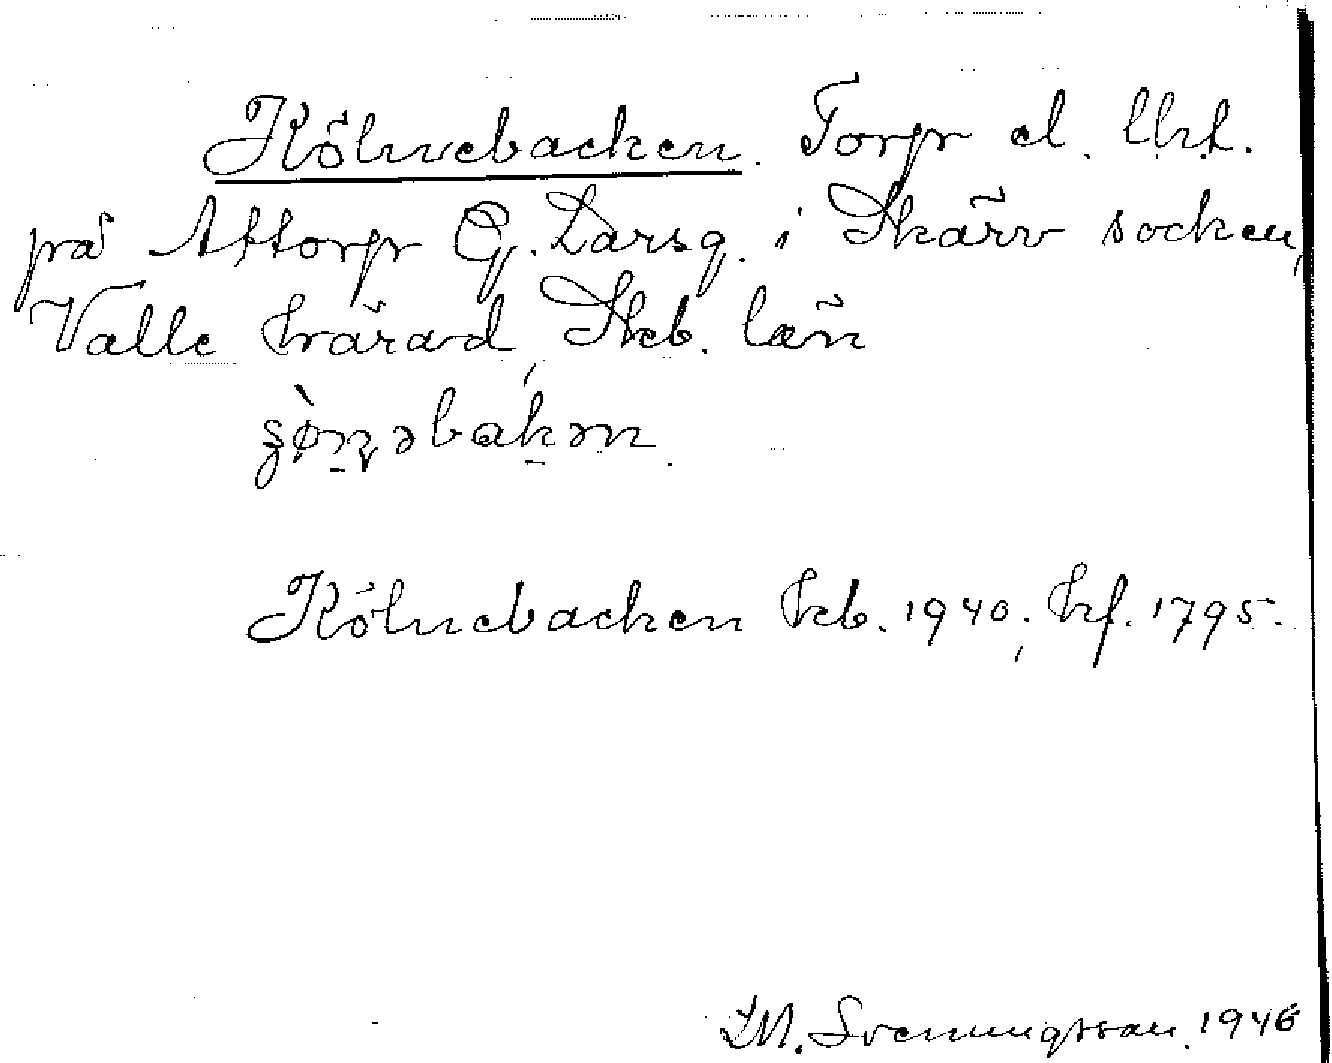 Kölnebacken. Torp el. lht.
på Attorp G. Larsg. i Skärv socken,
Valle härad, Skb. län
Kölnebacken hcb. 1940; hf. 1795.
M. Svenungsson. 1946